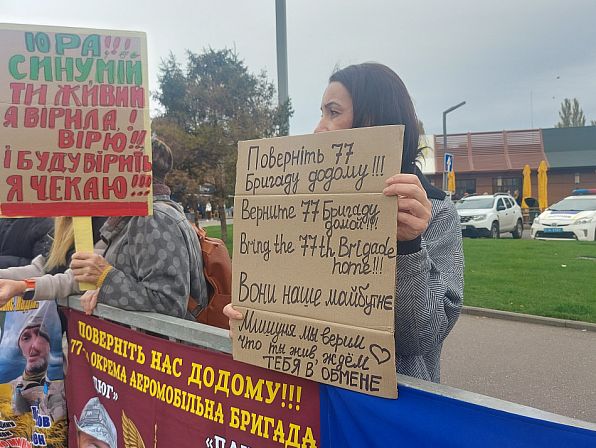 ЮРА!!!
СИНУ МІЙ
ТИ ЖИВИЙ
Я ВІРИЛА!
ВІРЮ!!!
І БУДУ ВІРИТЬ
Я ЧЕКАЮ!!!
Поверніть 77
Бригаду додому!!!
Верните 77 Бригаду
домой!!!
Bring the 77th Brigade
home!!!
Вони наше майбутнє
Мишуня мы верим
что ты жив ждём
ТЕБЯ В ОБМЕНЕ
ПОВЕРНІТЬ НАС ДОДОМУ!!!
77 ОКРЕМА АЕРОМОБІЛЬНА БРИГАДА